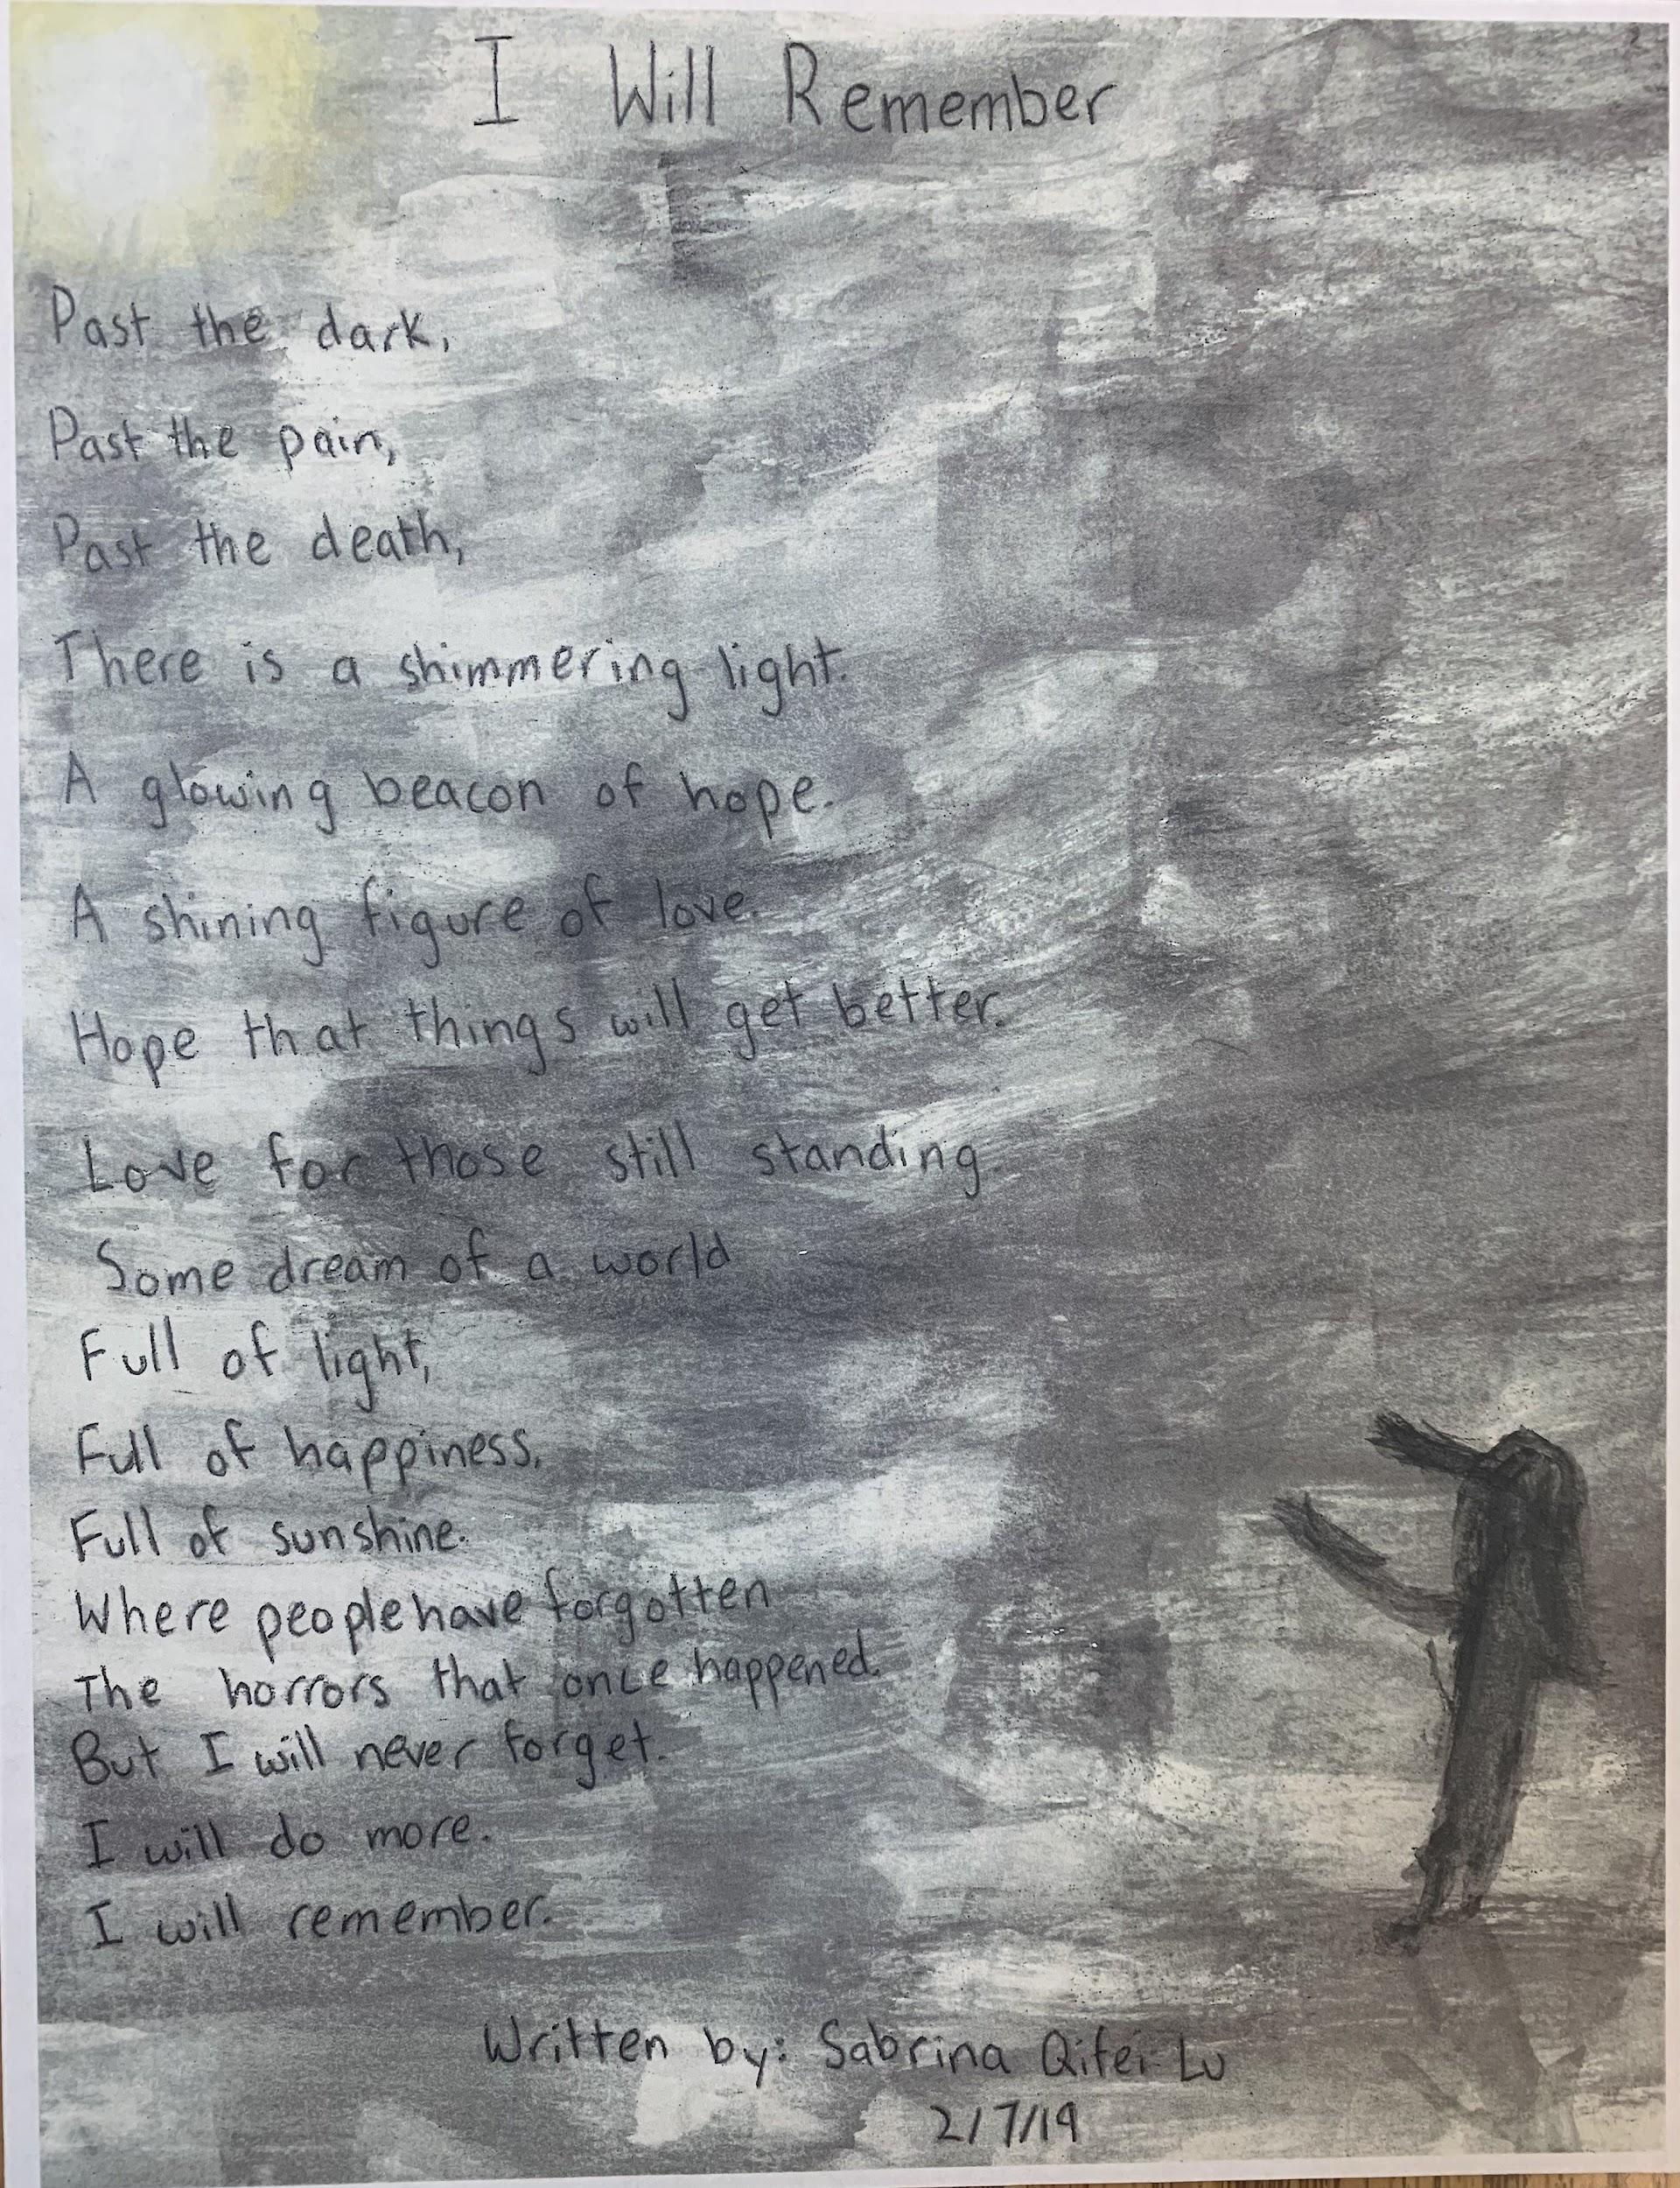 I Will Remember
Past the dark,
Past the pain,
Past the death,
There is a shimmering light.
A glowing beacon of hope.
A shining figure of love.
Hope that things will get better.
Love for those still standing.
Some dream of a world
Full of light,
Full of happiness,
Full of sunshine.
Where people have forgotten
The horrors that once happened.
But I will never forget.
I will do more.
I will remember.
Written by: Sabrina Qifei Lu
2/7/19